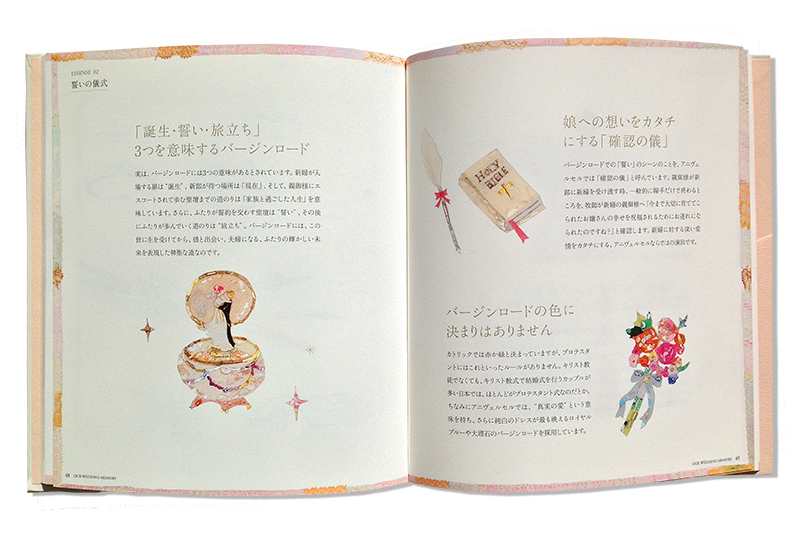 ESSENSE 02
誓いの儀式
「誕生・誓い・旅立ち」
3つを意味するバージンロード
実は、バージンロードには3つの意味があるとされています。新婦が入
場する扉は“誕生”、新郎が待つ場所は「現在」、そして、親御様にエ
スコートされて歩む聖壇までの道のりは「家族と過ごした人生」を意
味しています。さらに、ふたりが誓約を交わす聖壇は“誓い”、その後
にふたりが歩んでいく道のりは“旅立ち”。バージンロードには、この
世に生を受けてから、彼と出会い、夫婦になる、ふたりの輝かしい未
来を表現した神聖な道なのです。
48 OUR WEDDING MEMORY
娘への想いをカタチ
にする「確認の儀」
バージンロードでの「誓い」のシーンのことを、アニヴェ
ルセルでは「確認の儀」と呼んでいます。親御様が新
郎に新婦を受け渡す時、一般的に握手だけで終わると
ころを、牧師が新婦の親御様へ「今まで大切に育ててこ
られたお嬢さんの幸せを祝福されるためにお連れにな
られたのですね?」と確認します。新婦に対する深い愛
情をカタチにする、アニヴェルセルならではの演出です。
HOLY
BIBLE
バージンロードの色に
決まりはありません
カトリックでは赤か緑と決まっていますが、プロテスタ
ントにはこれといったルールがありません。キリスト教
徒でなくても、キリスト教式で結婚式を行うカップルが
多い日本では、ほとんどがプロテスタント式なのだとか。
ちなみにアニヴェルセルでは、“真実の愛”という意
味を持ち、さらに純白のドレスが最も映えるロイヤル
ブルーや大理石のバージンロードを採用しています。
OUR WEDDING MEMORY 49